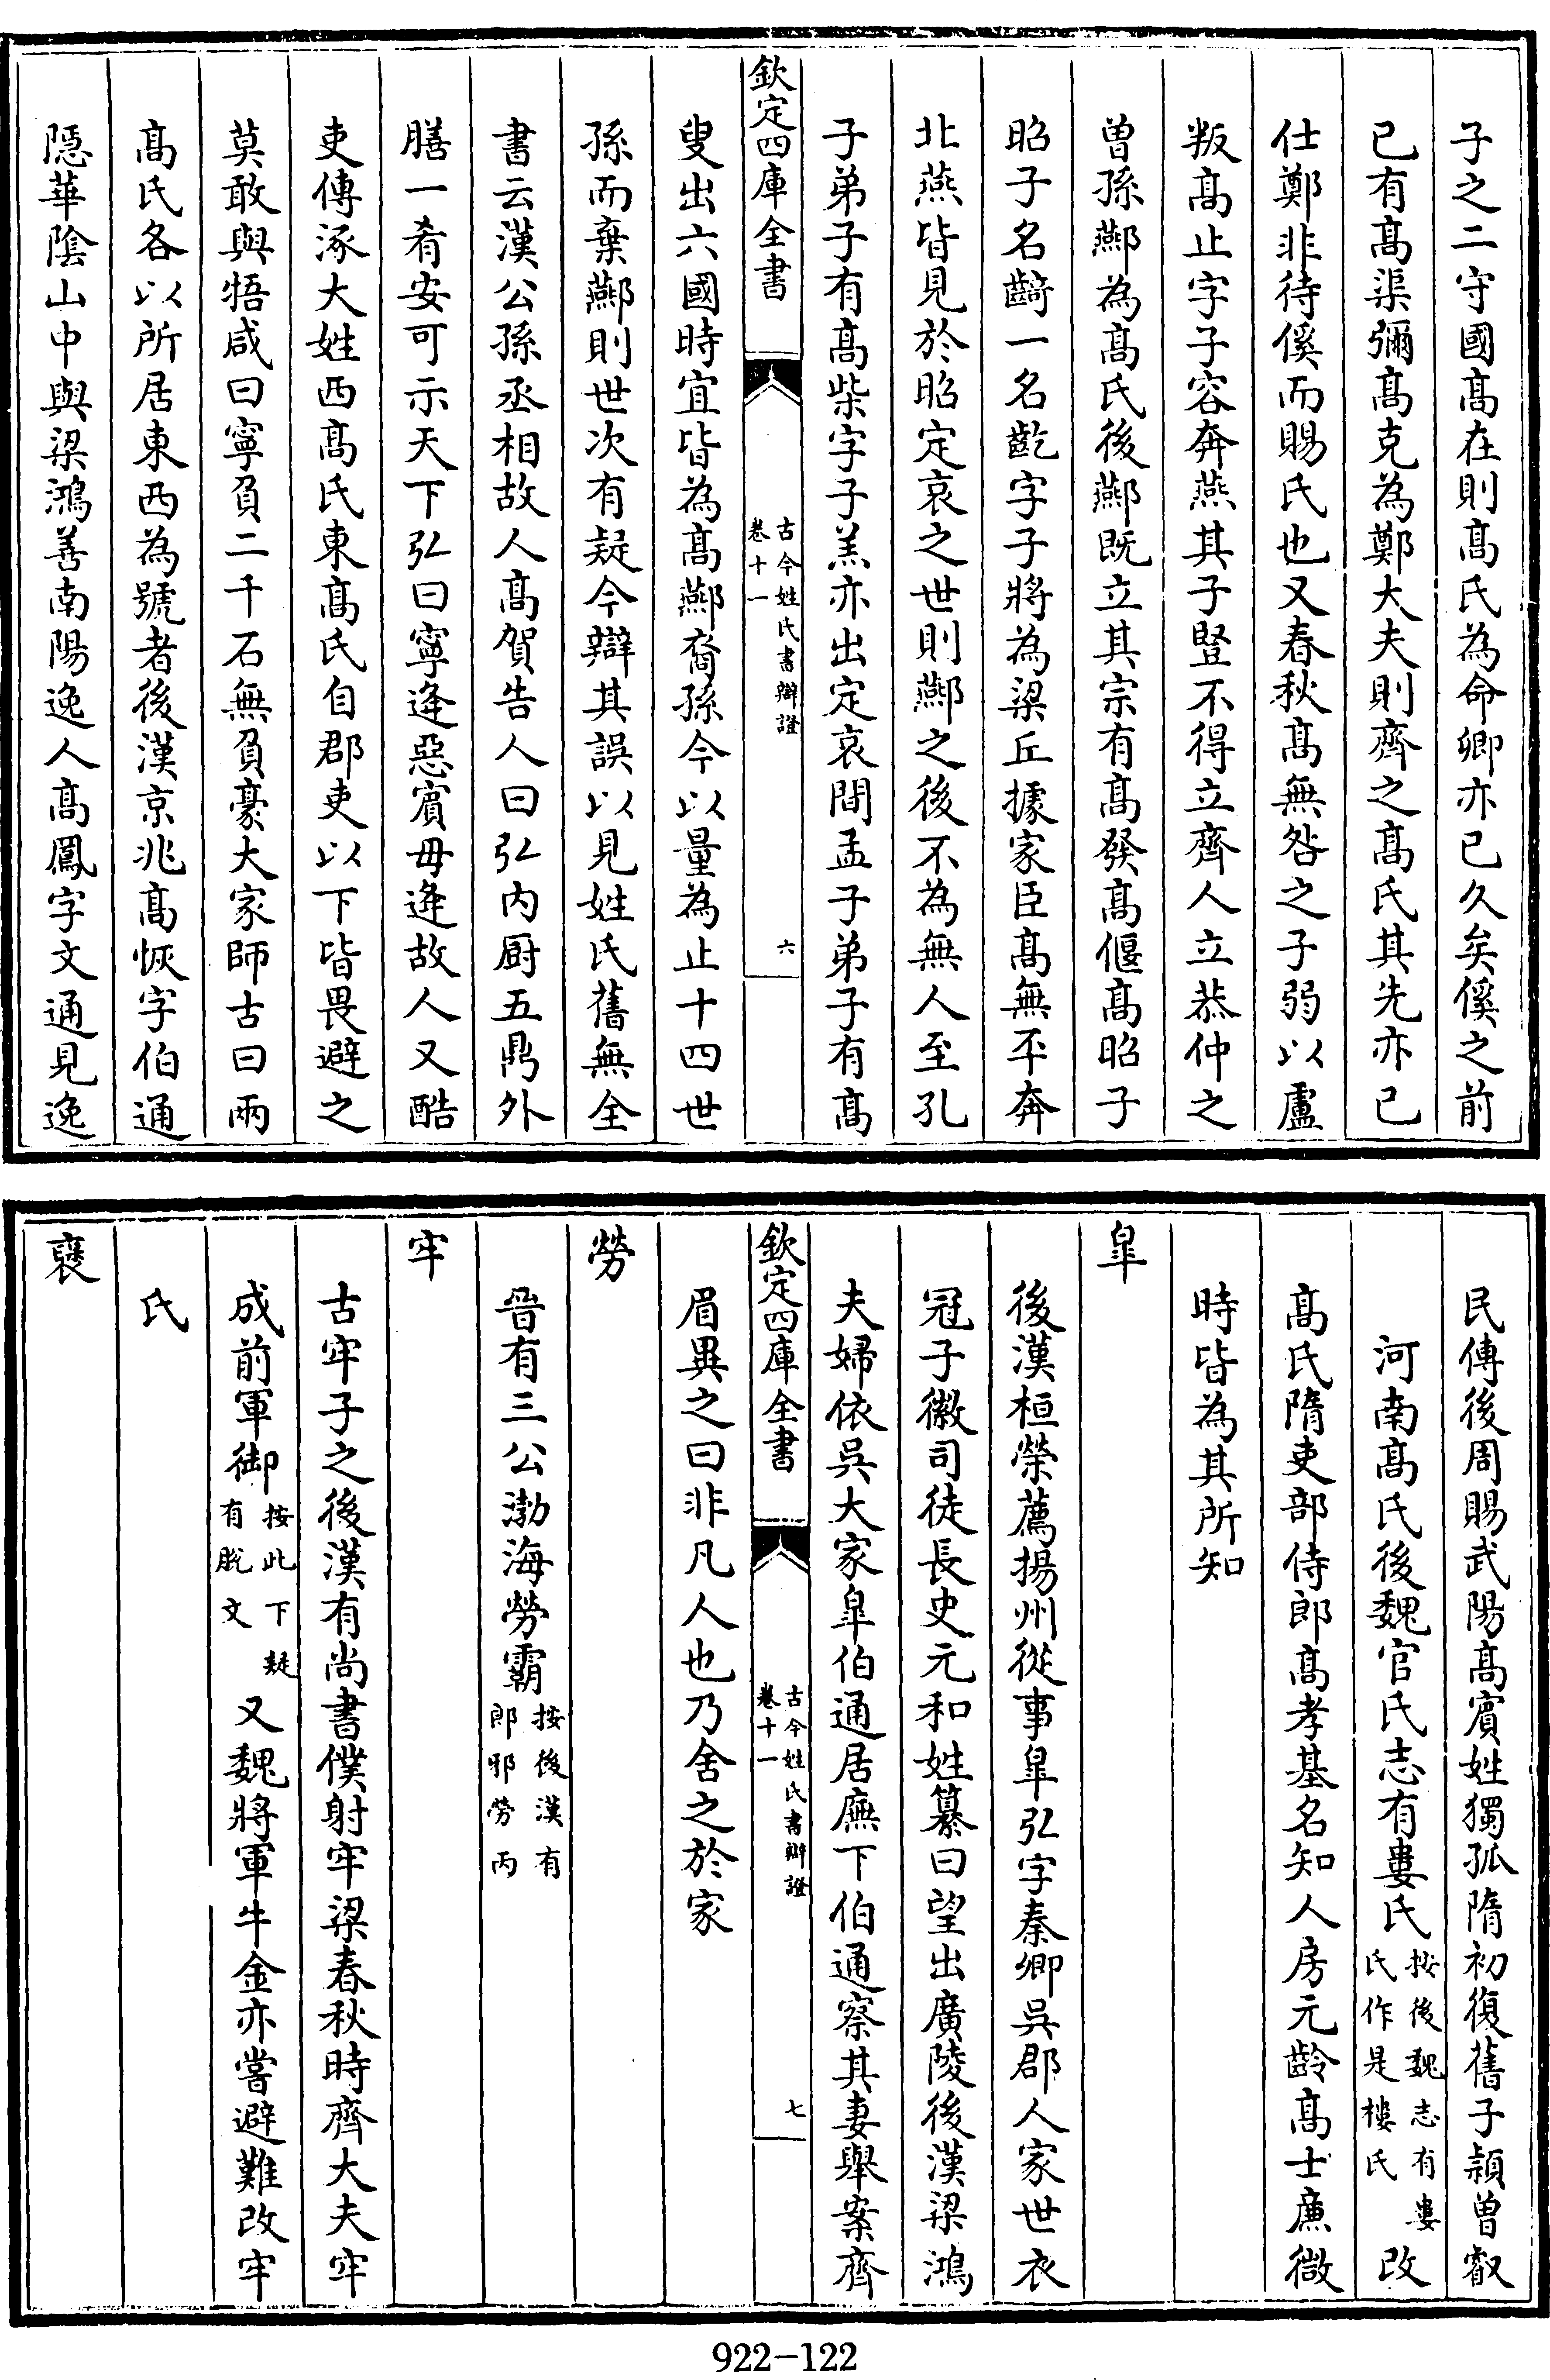 子之二守國髙在則髙氏為命卿亦已久矣傒之前
已有髙渠彌髙克為鄭大夫則齊之髙氏其先亦已
仕鄭非待傒而賜氏也又春秋髙無咎之子弱以盧
叛髙止字子容奔燕其子豎不得立齊人立恭仲之
曾孫酀為髙氏後酀既立其宗有髙發髙偃髙昭子
昭子名齮一名齕字子將為梁丘據家臣髙無㔻奔
北燕皆見於昭定哀之世則酀之後不為無人至孔
子弟子有髙柴字子羔亦出定哀間孟子弟子有髙
欽定四庫全書
古今姓氏書辯證
卷十一
六
叟出六國時宜皆為髙酀裔孫今以量為止十四世
孫而棄酀則世次有疑今辯其誤以見姓氏舊無全
書云漢公孫丞相故人髙賀告人曰弘内厨五鼎外
膳一肴安可示天下弘曰寧逢惡賓毋逢故人又酷
吏傳涿大姓西髙氏東髙氏自郡吏以下皆畏避之
莫敢與牾咸曰寧負二千石無負豪大家師古曰兩
髙氏各以所居東西為號者後漢京兆髙恢字伯通
隱華陰山中與梁鴻善南陽逸人髙鳳字文通見逸
民傳後周賜武陽髙賓姓獨孤隋初復舊子熲曾叡
河南髙氏後魏官氏志有婁氏按後魏志有婁氏作是樓氏改
髙氏隋吏部侍郎髙孝基名知人房元齡髙士廉微
時皆為其所知
皐
後漢桓榮薦揚州從事皐弘字秦卿吳郡人家世衣
冠子徽司徒長史元和姓纂曰望出廣陵後漢梁鴻
夫婦依吳大家皐伯通居廡下伯通察其妻舉案齊
欽定四庫全書
古今姓氏書辯證
卷十一
七
眉異之曰非凡人也乃舍之於家
勞
晉有三公渤海勞霸按後漢有郎邪勞丙
牢
古牢子之後漢有尚書僕射牢梁春秋時齊大夫牢
成前軍御按此下疑有脫文又魏將軍牛金亦嘗避難改牢
氏
襃
922-122